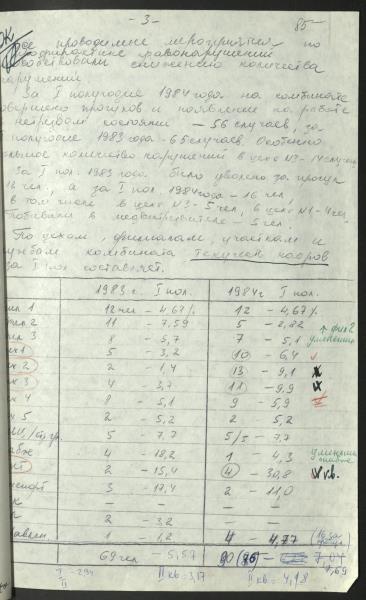 - 3 -
85
все проводимые мероприятия по
профилактике правонарушений
способствовали снижению количества
нарушений
За I полугодие 1984 года на комбинате
совершено прогулов и появление на работе
в нетрезвом состоянии - 56 случаев, за
I полугодие 1983 года - 65 случаев. Особенно
большое количество нарушений в цехе N3 - 14 случ.
За I пол. 1983 года было уволено за прогул
16 чел, а за I пол. 1984 года - 16 чел,
в том числе в цехе N3 - 5 чел, в цехе N1 - 4 чел.
Побывали в медвытрезвителе - 5 чел.
По цехам, филиалам, участкам и
службам комбината текучесть кадров
за I пол. составляет.
1983 г. I пол. 1984 г I пол.
1 12 чел - 4,67% 12 - 4,67%
2 11 - 7,59 5 - 2,82
3 8 - 5,7 7 - 5,1
1 5 - 3,2 10 - 6,4
2 2 - 1,4 13 - 9,1
3 4 - 3,7 11 - 9,9
4 8 - 5,1 9 - 5,9
5 2 - 5,2 2 - 5,2
5 - 7,7 5/5 - 7,7
4 - 18,2 1 - 4,3
2 - 15,4 4 - 30,8
3 - 17,4 2 - 11,0
- - - -
2 - 3,2 - -
1 - 1,2 4 - 4,77
69 чел - 5,57 90 (86) - 7,04
II кв = 3,17 II кв = 4,18